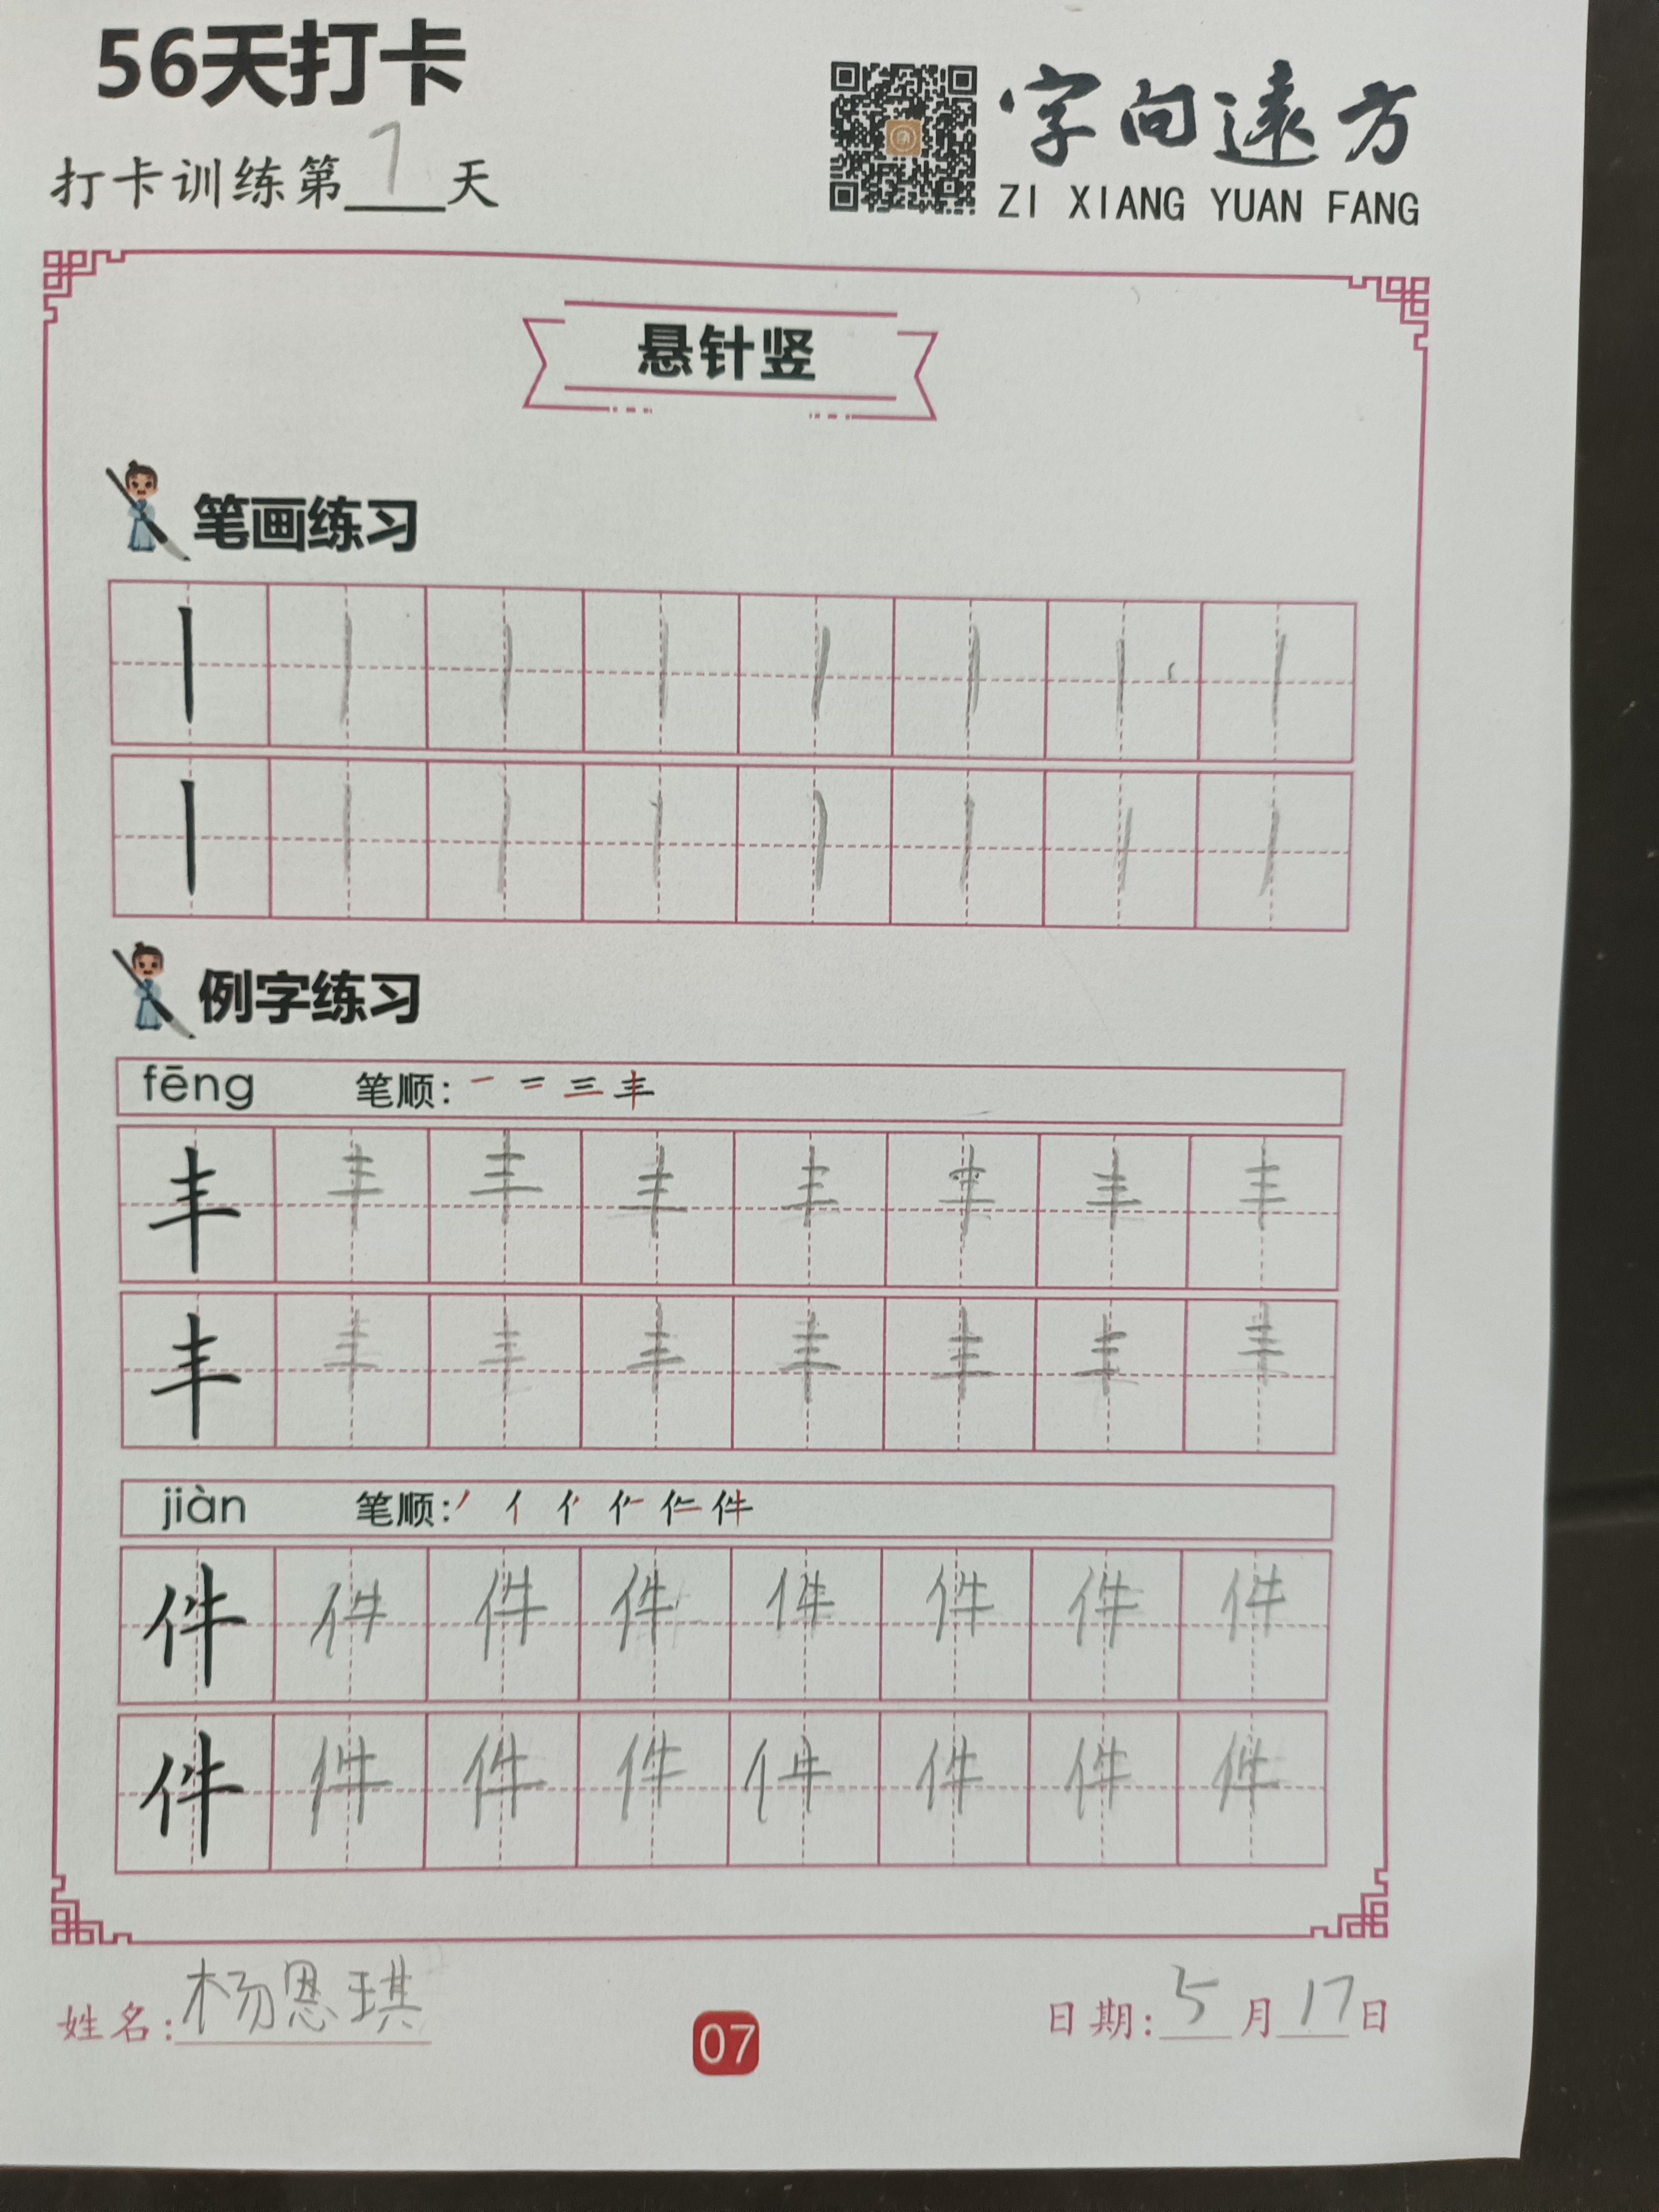 56天打卡
打卡训练第7天
字向远方
ZI XIANG YUAN FANG
悬针竖
笔画练习
丨 丨 丨 丨 丨 丨 丨 丨
丨 丨 丨 丨 丨 丨 丨 丨
例字练习
fēng 笔顺: 一 二 三 丰
丰 丰 丰 丰 丰 丰 丰 丰
丰 丰 丰 丰 丰 丰 丰 丰
jiàn 笔顺: 丿 亻 件
件 件 件 件 件 件 件 件
件 件 件 件 件 件 件 件
姓名: 杨恩琪
07
日期: 5月17日